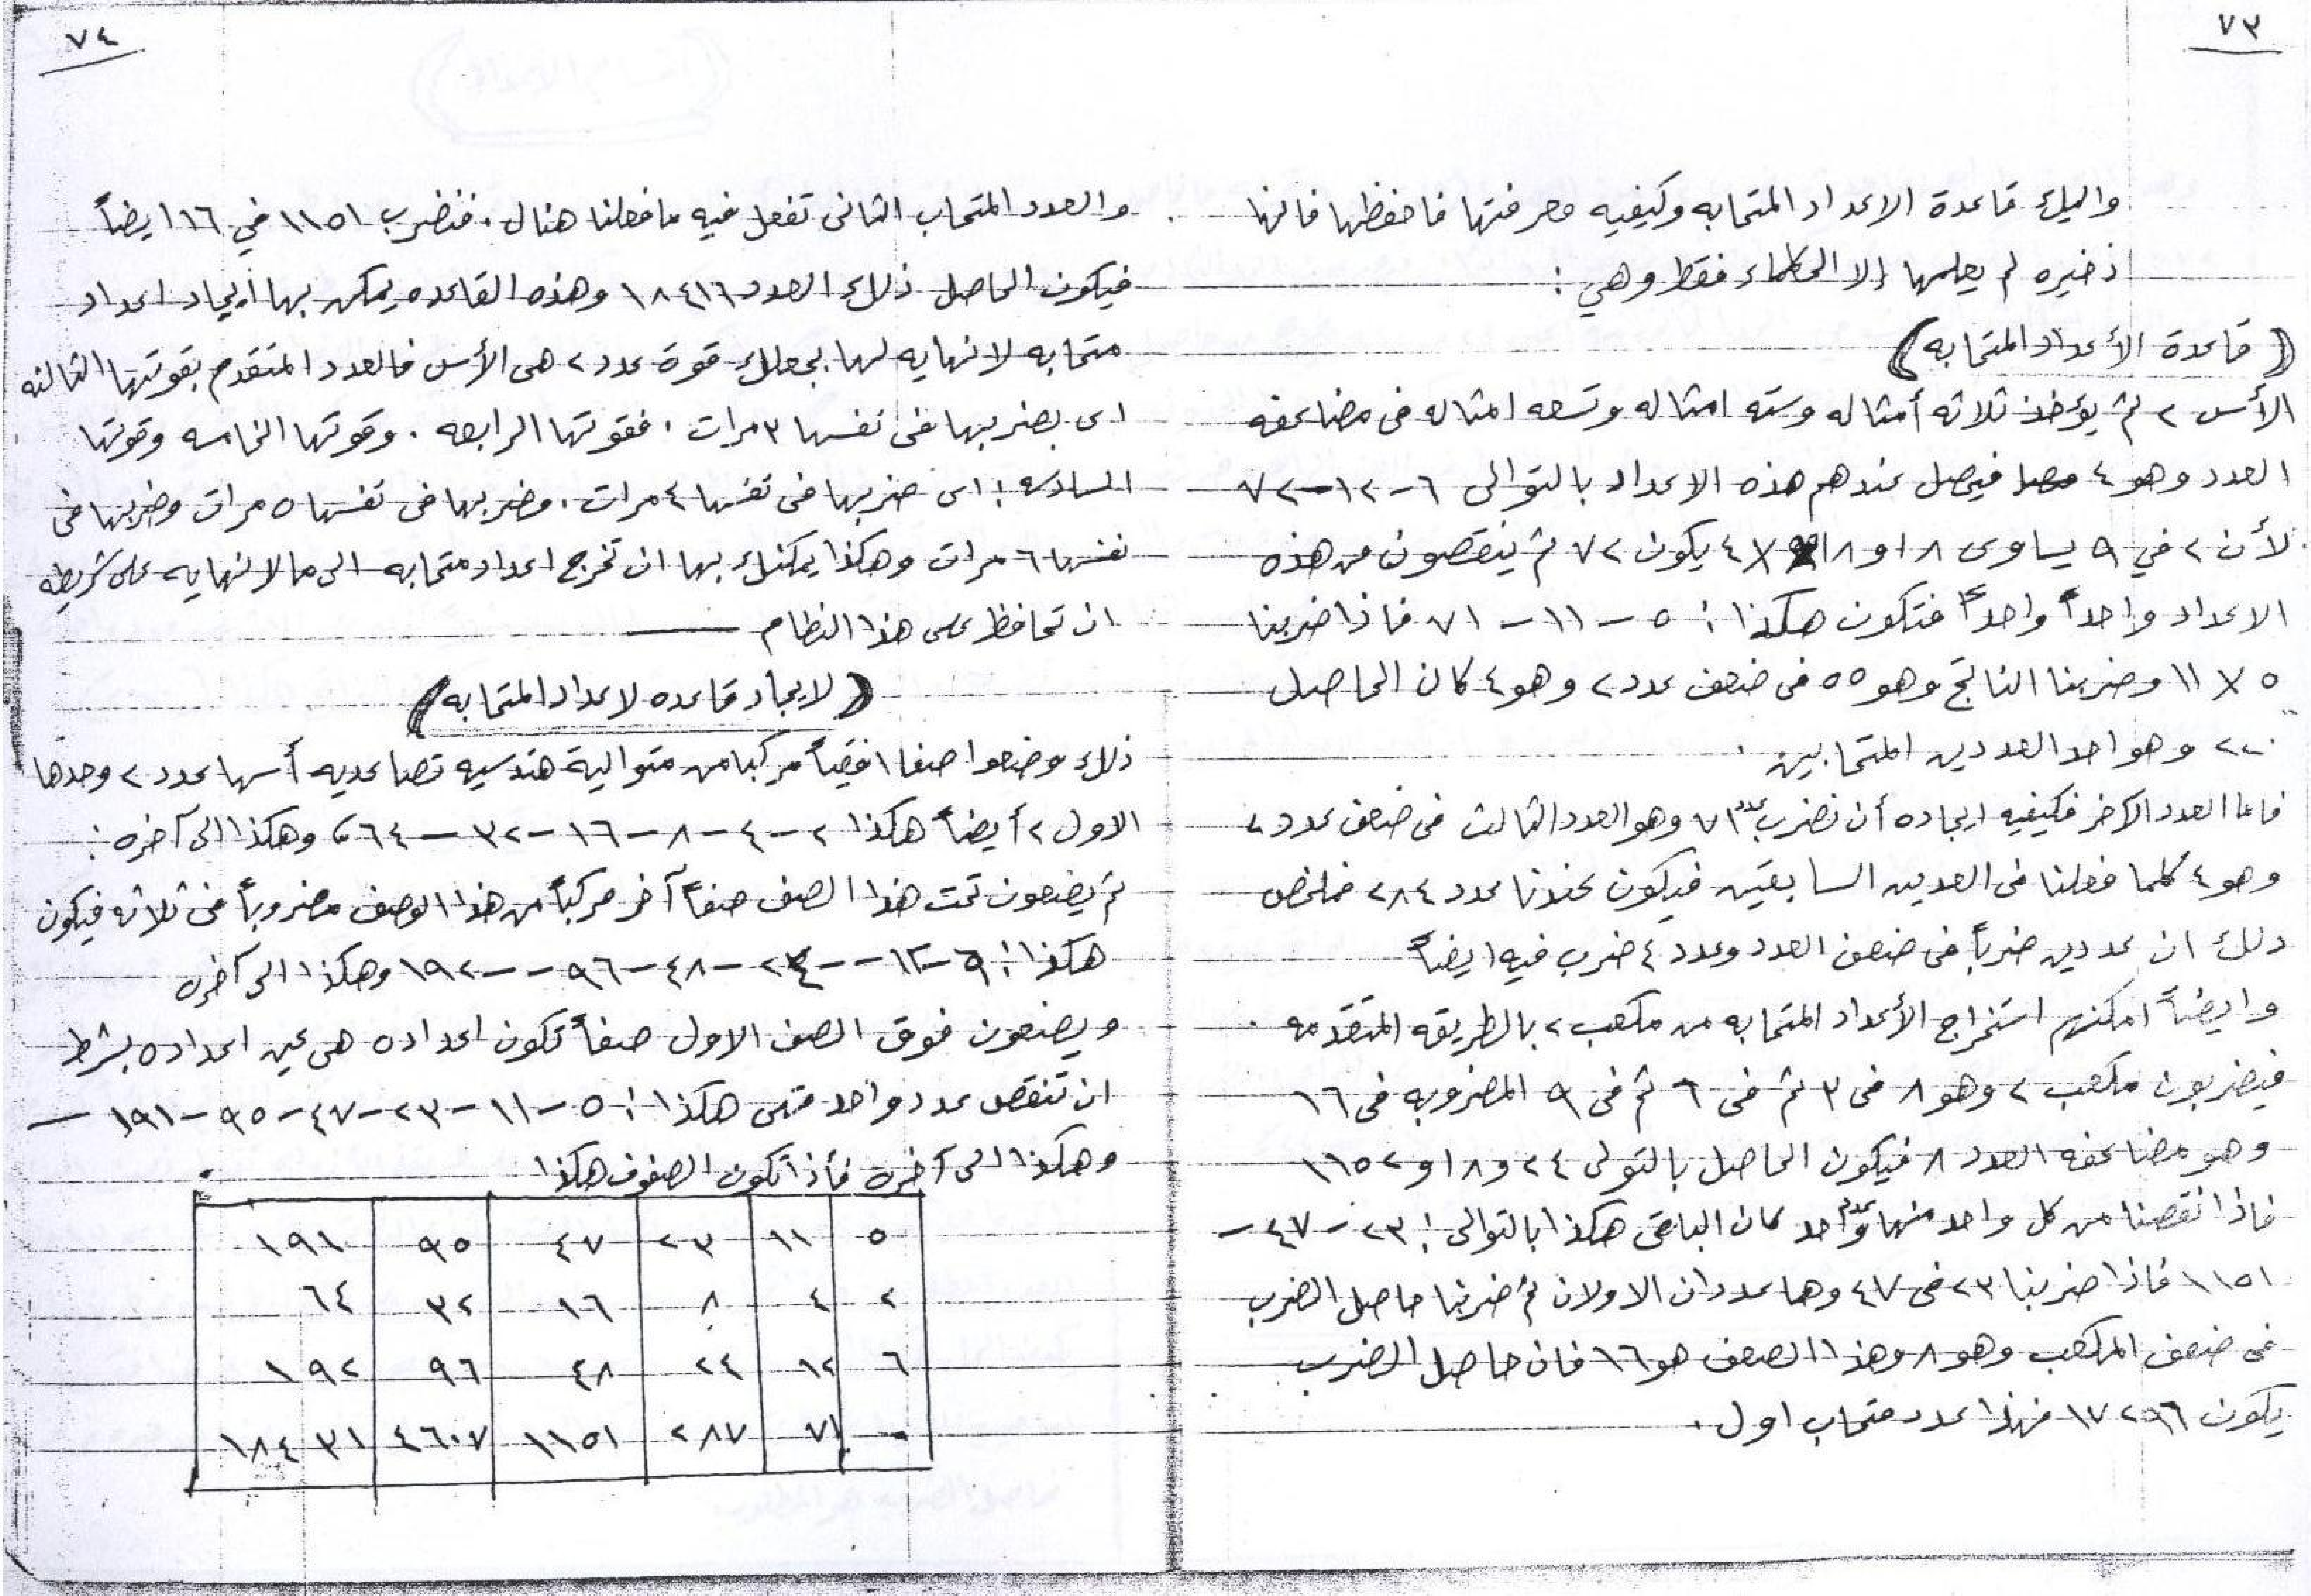 ٧٣
واليك قاعدة الاعداد المتحابه وكيفيه معرفتها فاحفظها فانها
ذخيره لم يعلمها إلا الحكماء فقط وهي :
(قاعدة الأعداد المتحابه)
الأس ٢ ثم يؤخذ ثلاثه أمثاله وسته امثاله وتسعه امثاله فى مضاعفه
العدد وهو ٤ فيحصل عندهم هذه الاعداد بالتوالى ٦ - ١٢ - ٧٢
لأن ٢ في ٩ يساوى ١٨ و ١٨ X ٤ يكون ٧٢ ثم ينقصون من هذه
الاعداد واحداً واحداً فتكون هكذا : ٥ - ١١ - ٧١ فاذا ضربنا
٥ X ١١ وضربنا الناتج وهو ٥٥ فى ضعف عدد ٢ وهو ٤ كان الحاصل
٢٢٠ وهو احد العددين المتحابين .
فاما العدد الآخر فكيفيه ايجاده أن نضرب عدد ٧١ وهو العدد الثالث فى ضعف عدد ٢
وهو ٤ كلما فعلنا فى العددين السابقين فيكون عندنا عدد ٢٨٤ فملخص
ذلك ان عددين ضرباً فى ضعف العدد وعدد ٤ ضرب فيه ايضاً
وايضاً امكنهم استخراج الأعداد المتحابه من مكعب ٢ بالطريقه المتقدمه .
فيضربون مكعب ٢ وهو ٨ فى ٣ ثم فى ٦ ثم فى ٩ المضروبه فى ١٦
وهو مضاعفه العدد ٨ فيكون الحاصل بالتولى ٢٤ و ١٨ او ١١٥٢
فاذا انقصنا من كل واحد منها عدد واحد كان الباقى هكذا بالتوالى : ٢٣ - ٤٧ -
١١٥١ فاذا ضربنا ٢٣ فى ٤٧ وهما عددان الاولان ثم ضربنا حاصل الضرب
فى ضعف المكعب وهو ٨ وهذا الضعف هو ١٦ فان حاصل الضرب
يكون ١٧٢٩٦ فهذا عدد متحاب اول .
٧٤
والعدد المتحاب الثانى تفعل فيه ما فعلنا هنال . فنضرب ١١٥١ في ١٦ ايضاً
فيكون الحاصل ذلك العدد ١٨٤١٦ وهذه القاعده يمكن بها ايجاد اعداد
متحابه لا نهايه لها بجعلك قوة عدد ٢ هى الأس فالعدد المتقدم بقوتها الثالثه
اى بضربها فى نفسها ٣ مرات . فقوتها الرابعه . وقوتها الخامسه وقوتها
السادسه : اى ضربها فى نفسها ٤ مرات . وضربها فى نفسها ٥ مرات وضربها فى
نفسها ٦ مرات وهكذا يمكنك بها ان تخرج اعداد متحابه الى مالا نهايه على شريطه
ان تحافظ على هذا النظام
(لايجاد قاعده لاعداد المتحابه)
ذلك وضعوا صفا افقياً مركبا من متوالية هندسيه تصاعديه أسها عدد ٢ وحدها
الاول ٢ أيضاً هكذا ٢ - ٤ - ٨ - ١٦ - ٣٢ - ٦٤ ، وهكذا الى آخره :
ثم يضعون تحت هذا الصف صفاً آخر مركباً من هذا الوصف مضروباً فى ثلاثه فيكون
هكذا : ٦ - ١٢ - - ٢٤ - ٤٨ - ٩٦ - - ١٩٢ وهكذا الى آخره
ويضعون فوق الصف الاول صفاً تكون اعداده هى عين اعداده بشرط
ان تنقص عدد واحد فتهى هكذا : ٥ - ١١ - ٢٣ - ٤٧ - ٩٥ - ١٩١ -
وهكذا الى آخره فأذا تكون الصفوف هكذا :
٥ ١١ ٢٣ ٤٧ ٩٥ ١٩١
٢ ٤ ٨ ١٦ ٣٢ ٦٤
٦ ١٢ ٢٤ ٤٨ ٩٦ ١٩٢
٠ ٧١ ٢٨٧ ١١٥١ ٤٦٠٧ ١٨٤٣١